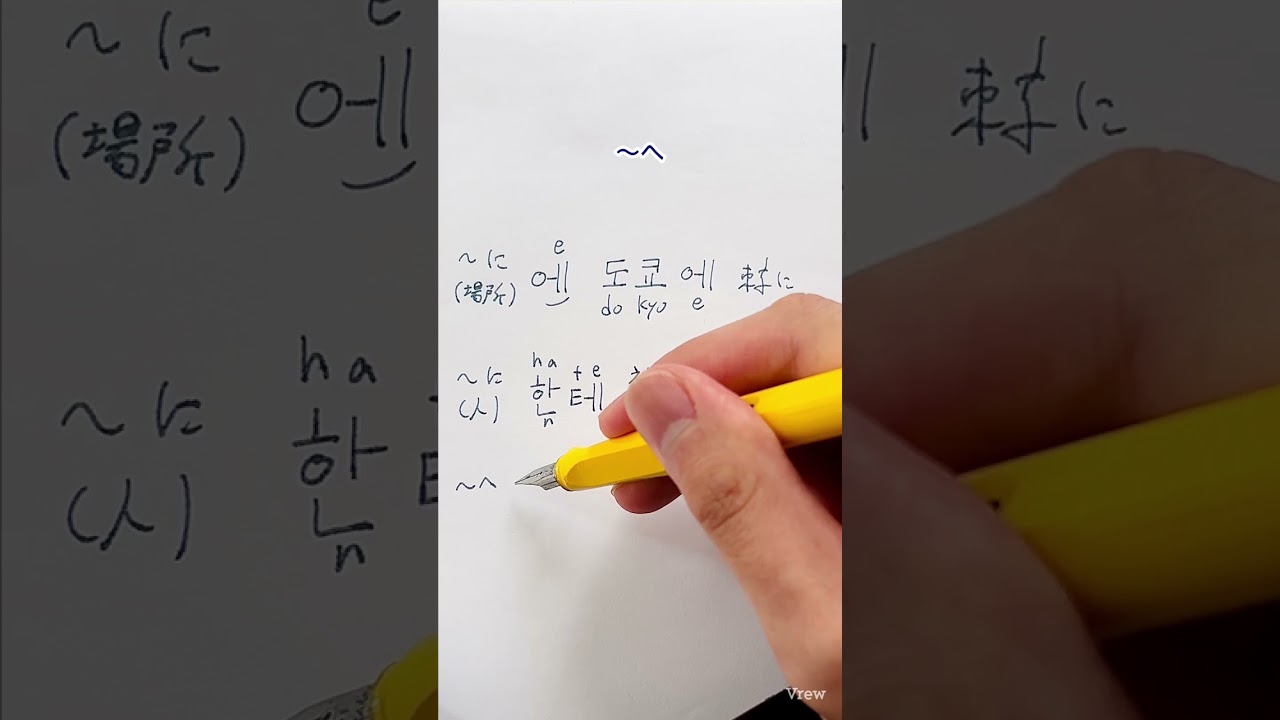 ～へ
e
～に 에 도쿄에 に
(場所) do kyo e
ha te
～に 한테
(人) n
～へ
Vrew